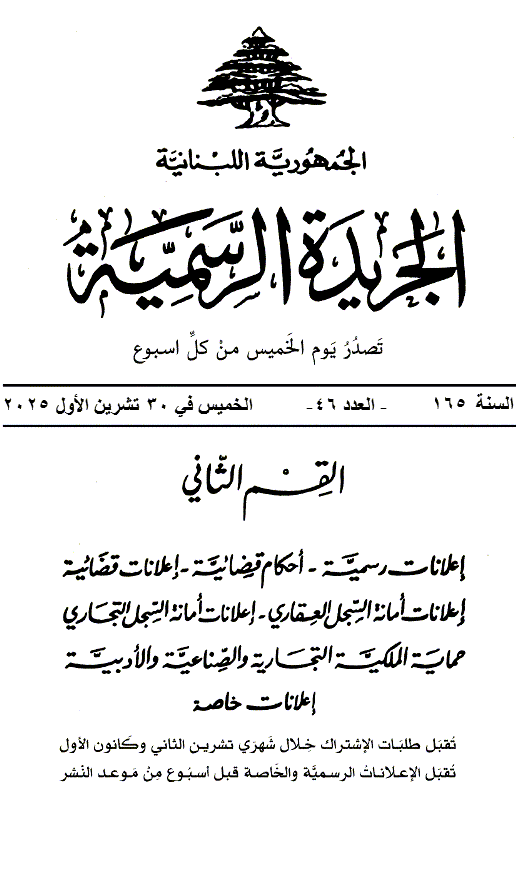 الجُمهُوريَّة اللبْنانيَّة
الجَريدَة الرسَّمِيَّة
تَصدُرُ يَوم الخَميس منْ كلِّ اسبوع
السنة ١٦٥ - العدد ٤٦- الخميس في ٣٠ تشرين الأول ٢٠٢٥
القِسْم الثّاني
إعلانات رسميَّة - أحكام قضائيَّة - إعلانات قضائية
إعلانات أمانة السِّجل العقاري - إعلانات أمانة السِّجل التجاري
حماية الملكيَّة التجارية والصِّناعيَّة والأدبيَّة
إعلانات خاصة
تُقبَل طلبَات الإشتراك خِلال شَهرَي تشرين الثاني وكَانون الأول
تُقبَل الإعلاناتُ الرسميَّة والخَاصة قبل أسبُوع مِنْ مَوعد النَشر